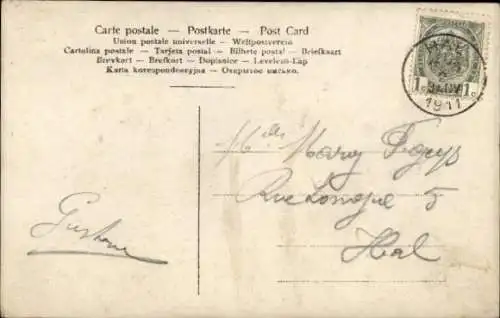 Carte postale — Postkarte — Post Card
Union postale universelle — Weltpostverein
Cartolina postale — Tarjeta postal — Bilhete postal — Briefkaart
Brevkort — Brefkort — Dopisnice — Levelezö-Lap
Karta korespondencyjna — Открытое письмо.
HAL
1911
1c 1c
Mlles Mary
Rue Longue 5
Hal
Gustave